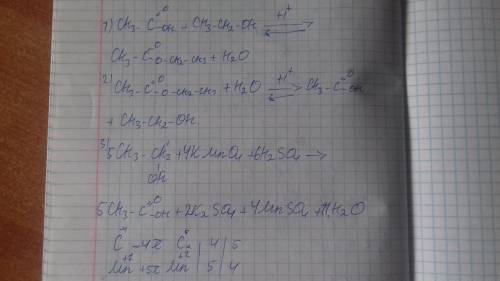 1) CH₃-C(=O)-OH + CH₃-CH₂-OH ⇌(+H⁺)
CH₃-C(=O)-O-CH₂-CH₃ + H₂O
2) CH₃-C(=O)-O-CH₂-CH₃ + H₂O ⇌(+H⁺) CH₃-C(=O)-OH
+ CH₃-CH₂-OH
3) 5CH₃-CH₂ + 4KMnO₄ + 6H₂SO₄ →
OH
5CH₃-C(=O)-OH + 2K₂SO₄ + 4MnSO₄ + 11H₂O
C -4e C | 4 | 5
Mn⁺⁷ +5e Mn⁺² | 5 | 4